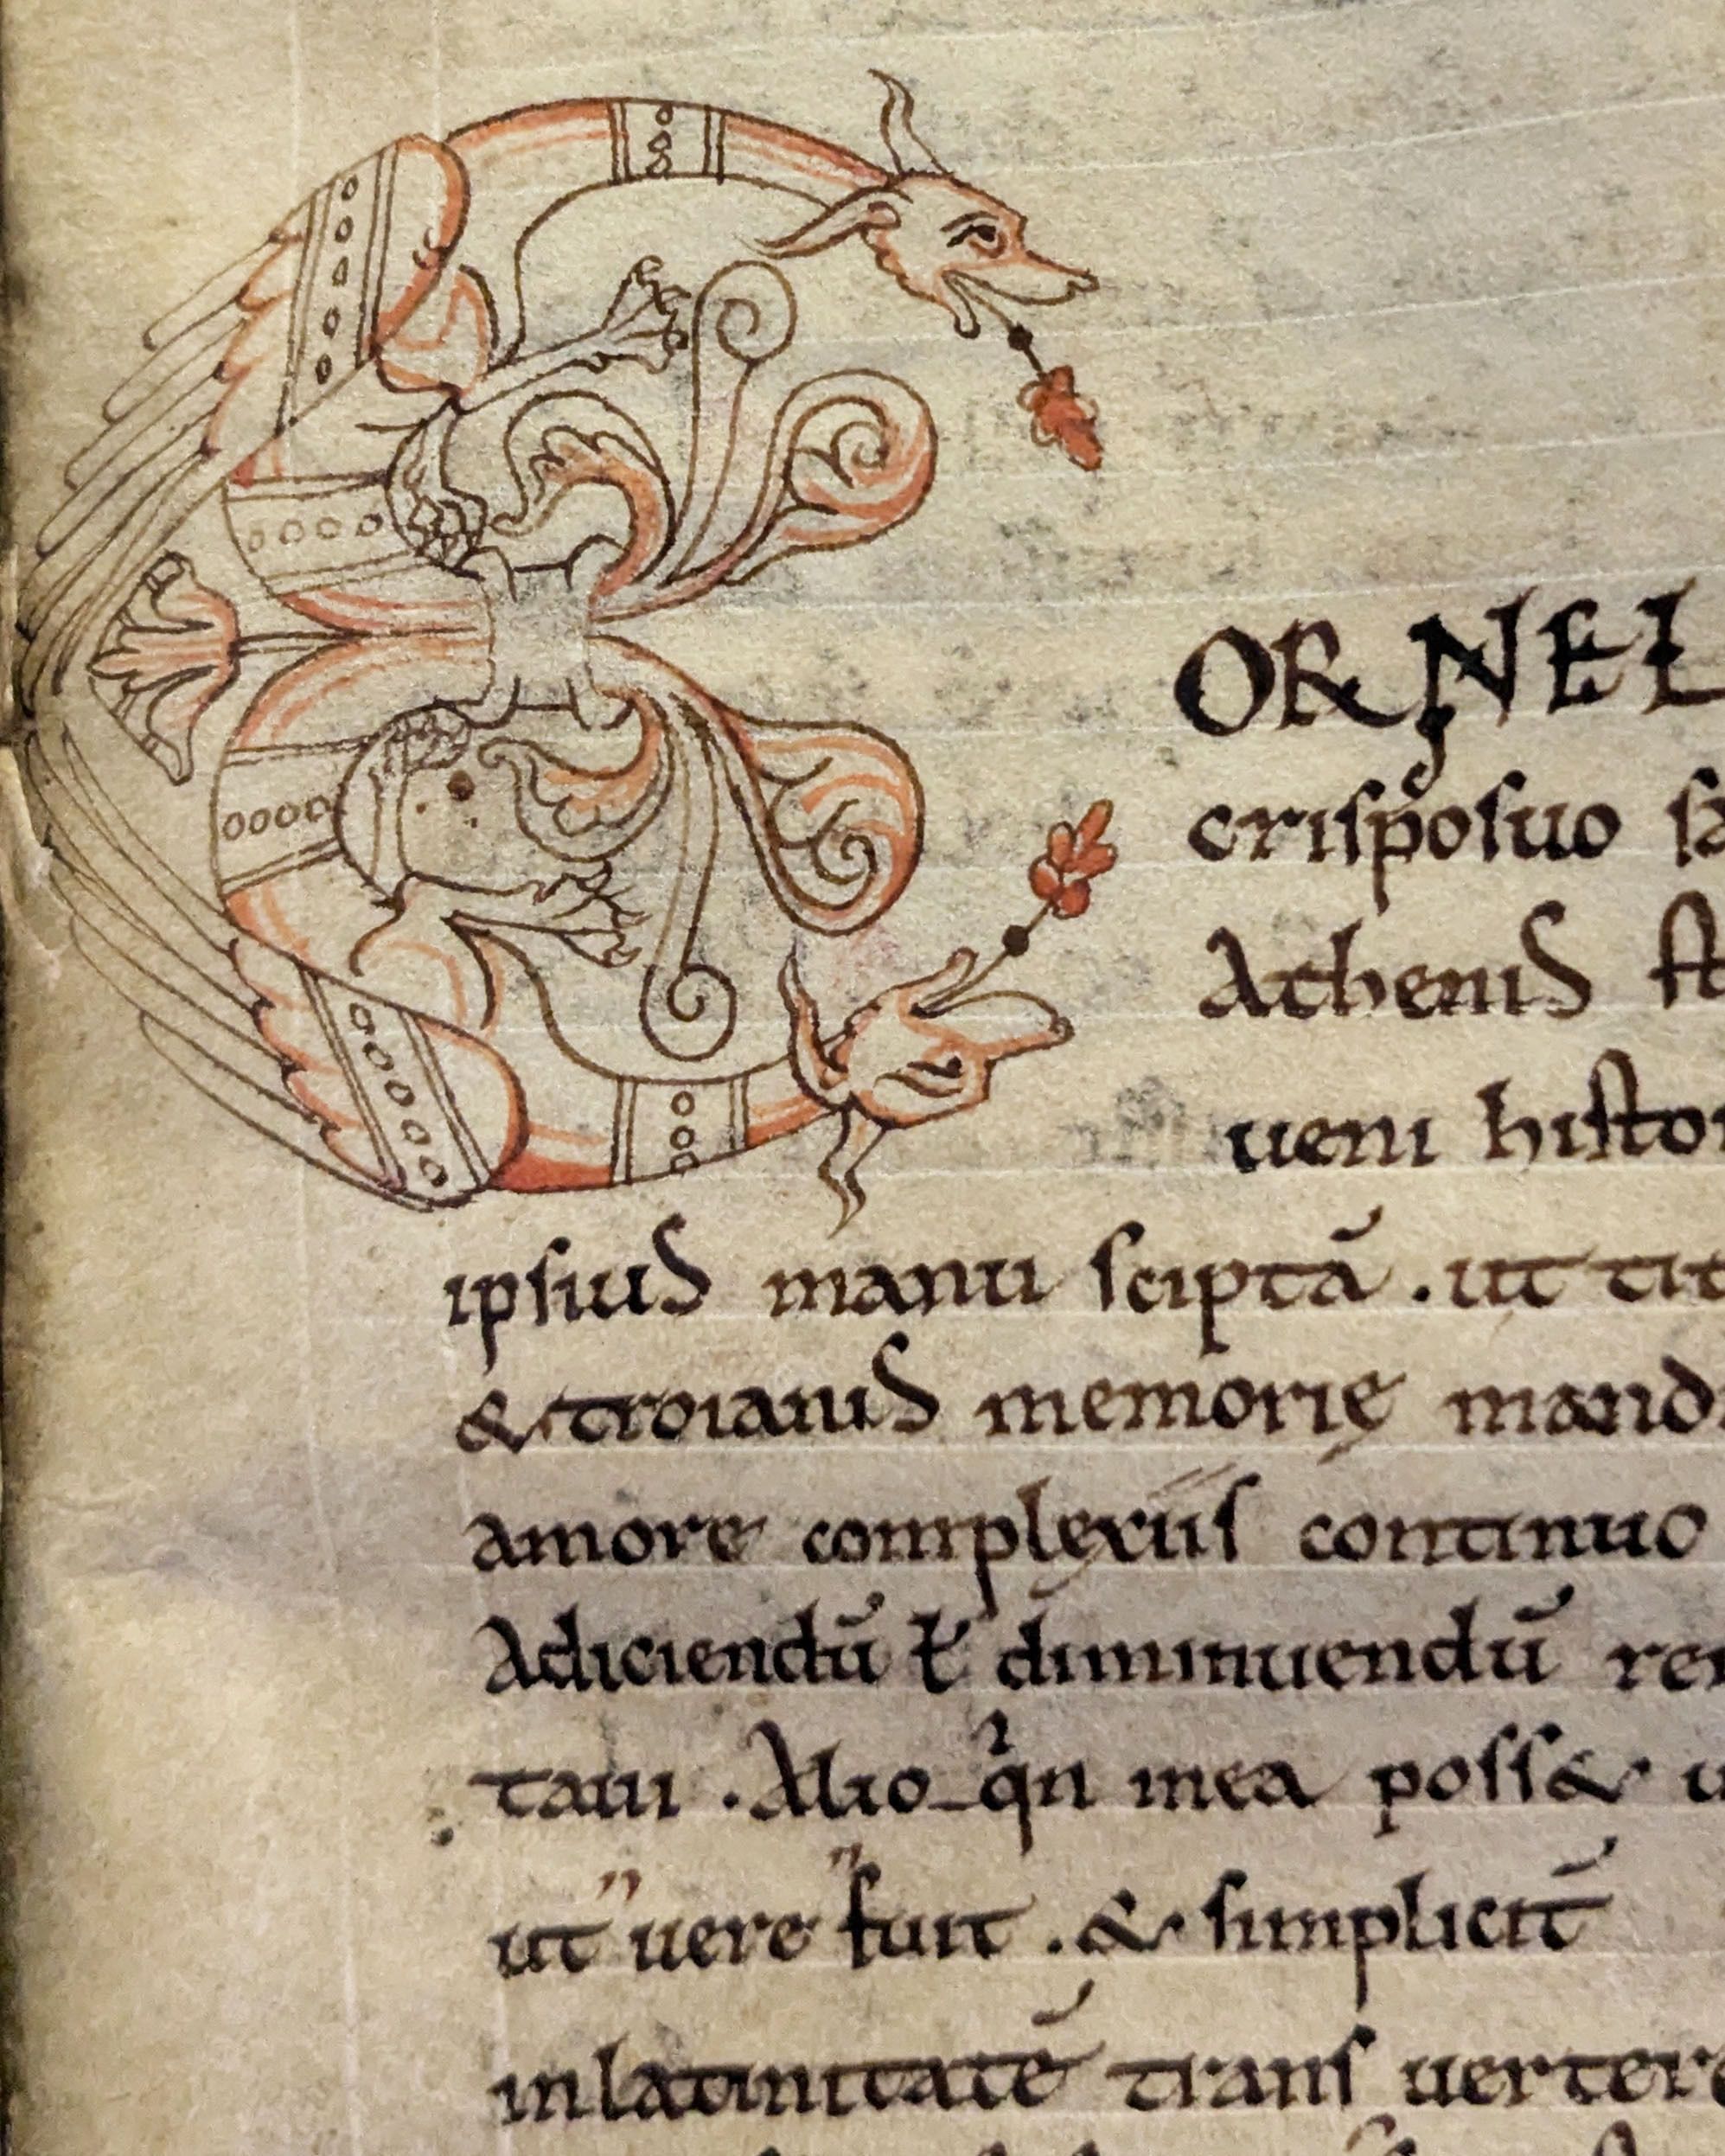 CORNEL
crisp͛o suo sa
Athenis st
ueni histor
ipsius manu sciptā . ut tit
& troianis memorię mand
amore complexiis continuo
Adiciendū ł diminuendū re
tam . Alio_qͥn mea poss& u
ut uere fuit . & simplicit̄
inlatinitatē trans uertere